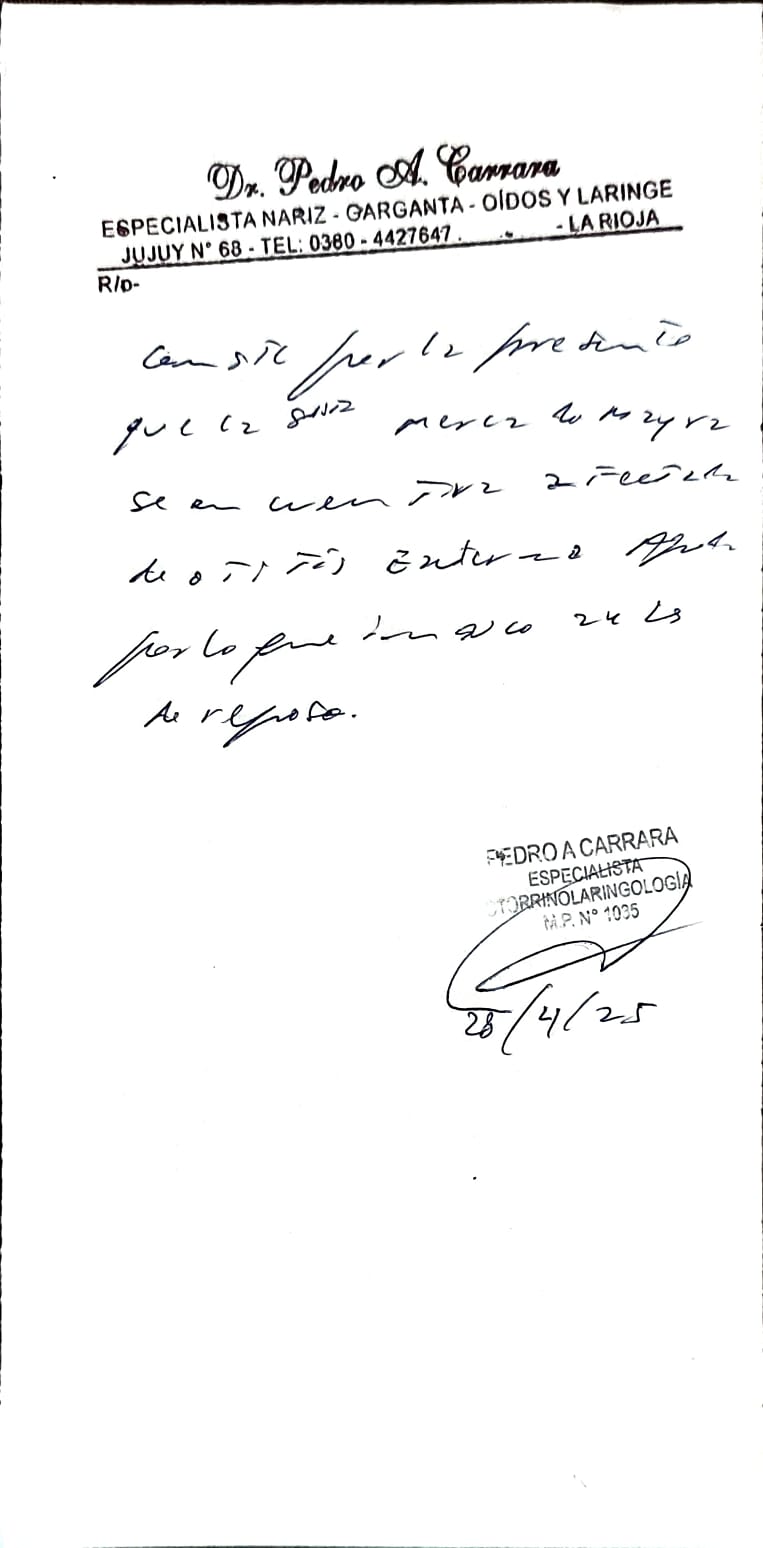 Dr. Pedro A. Carrara
ESPECIALISTA NARIZ - GARGANTA - OÍDOS Y LARINGE
JUJUY N° 68 - TEL: 0380 - 4427647. - LA RIOJA
R/p-
Conste por la presente
que la mayra
se encuentra afectada
de otitis Externa Aguda
por lo que indico 24 hs
de reposo.
PEDRO A CARRARA
ESPECIALISTA
OTORRINOLARINGOLOGÍA
M.P. N° 1035
28/4/25